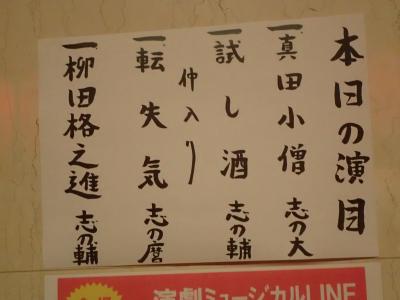 本日の演目
一真田小僧 志の大
一試し酒 志の輔
仲入り
一転失気 志の麿
一柳田格之進 志の輔
演劇ミュージカルLINE